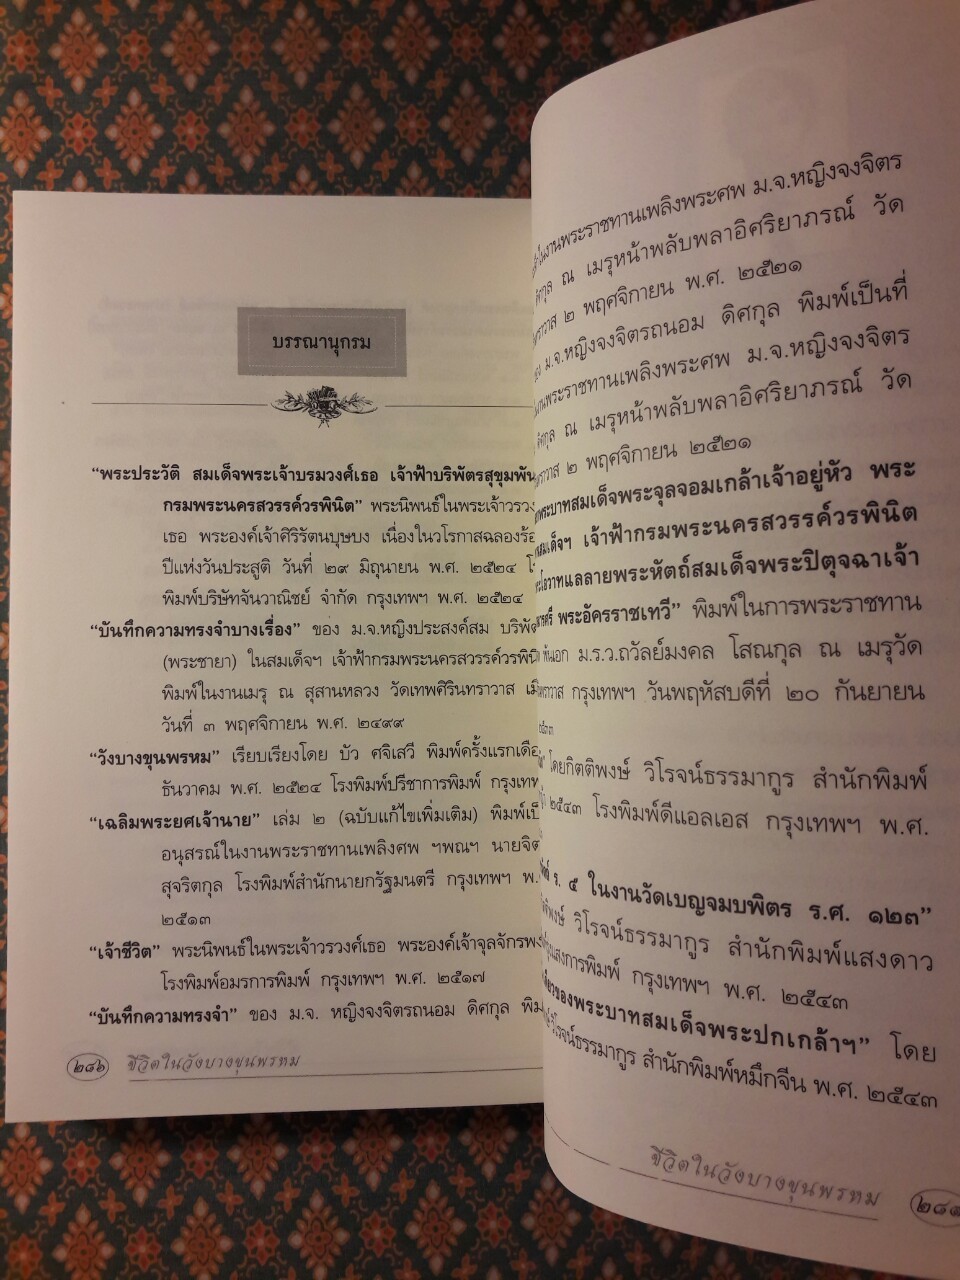 บรรณานุกรม
“พระประวัติ สมเด็จพระเจ้าบรมวงศ์เธอ เจ้าฟ้าบริพัตรสุขุมพัน
กรมพระนครสวรรค์วรพินิต” พระนิพนธ์ในพระเจ้าวรวง
เธอ พระองค์เจ้าศิริรัตนบุษบง เนื่องในวโรกาสฉลองร้อ
ปีแห่งวันประสูติ วันที่ ๒๙ มิถุนายน พ.ศ. ๒๕๒๔
พิมพ์บริษัทจันวาณิชย์ จำกัด กรุงเทพฯ พ.ศ. ๒๕๒๔
“บันทึกความทรงจำบางเรื่อง” ของ ม.จ.หญิงประสงค์สม บริพัต
(พระชายา) ในสมเด็จฯ เจ้าฟ้ากรมพระนครสวรรค์วรพินิ
พิมพ์ในงานเมรุ ณ สุสานหลวง วัดเทพศิรินทราวาส เมื่
วันที่ ๓ พฤศจิกายน พ.ศ. ๒๔๙๙
“วังบางขุนพรหม” เรียบเรียงโดย บัว ศจิเสวี พิมพ์ครั้งแรกเดือ
ธันวาคม พ.ศ. ๒๕๒๔ โรงพิมพ์ปรีชาการพิมพ์ กรุงเทพ
“เฉลิมพระยศเจ้านาย” เล่ม ๒ (ฉบับแก้ไขเพิ่มเติม) พิมพ์เป็
อนุสรณ์ในงานพระราชทานเพลิงศพ ฯพณฯ นายจิต
สุจริตกุล โรงพิมพ์สำนักนายกรัฐมนตรี กรุงเทพฯ พ.
๒๕๑๓
“เจ้าชีวิต” พระนิพนธ์ในพระเจ้าวรวงศ์เธอ พระองค์เจ้าจุลจักรพง
โรงพิมพ์อมรการพิมพ์ กรุงเทพฯ พ.ศ. ๒๕๑๗
“บันทึกความทรงจำ” ของ ม.จ. หญิงจงจิตรถนอม ดิศกุล พิม
๒๘๖ ชีวิตในวังบางขุนพรหม
ในงานพระราชทานเพลิงพระศพ ม.จ.หญิงจงจิตร
ดิศกุล ณ เมรุหน้าพลับพลาอิศริยาภรณ์ วัด
๒ พฤศจิกายน พ.ศ. ๒๕๒๑
ม.จ.หญิงจงจิตรถนอม ดิศกุล พิมพ์เป็นที่
งานพระราชทานเพลิงพระศพ ม.จ.หญิงจงจิตร
ณ เมรุหน้าพลับพลาอิศริยาภรณ์ วัด
๒ พฤศจิกายน ๒๕๒๑
พระบาทสมเด็จพระจุลจอมเกล้าเจ้าอยู่หัว พระ
สมเด็จฯ เจ้าฟ้ากรมพระนครสวรรค์วรพินิต
โอวาทแลลายพระหัตถ์สมเด็จพระปิตุจฉาเจ้า
พระอัครราชเทวี” พิมพ์ในการพระราชทาน
ม.ร.ว.ถวัลย์มงคล โสณกุล ณ เมรุวัด
กรุงเทพฯ วันพฤหัสบดีที่ ๒๐ กันยายน
โดยกิตติพงษ์ วิโรจน์ธรรมากูร สำนักพิมพ์
๒๕๔๓ โรงพิมพ์ดีแอลเอส กรุงเทพฯ พ.ศ.
ร. ๕ ในงานวัดเบญจมบพิตร ร.ศ. ๑๒๓”
วิโรจน์ธรรมากูร สำนักพิมพ์แสงดาว
การพิมพ์ กรุงเทพฯ พ.ศ. ๒๕๔๓
ของพระบาทสมเด็จพระปกเกล้าฯ” โดย
วิโรจน์ธรรมากูร สำนักพิมพ์หมึกจีน พ.ศ. ๒๕๔๓
ชีวิตในวังบางขุนพรหม